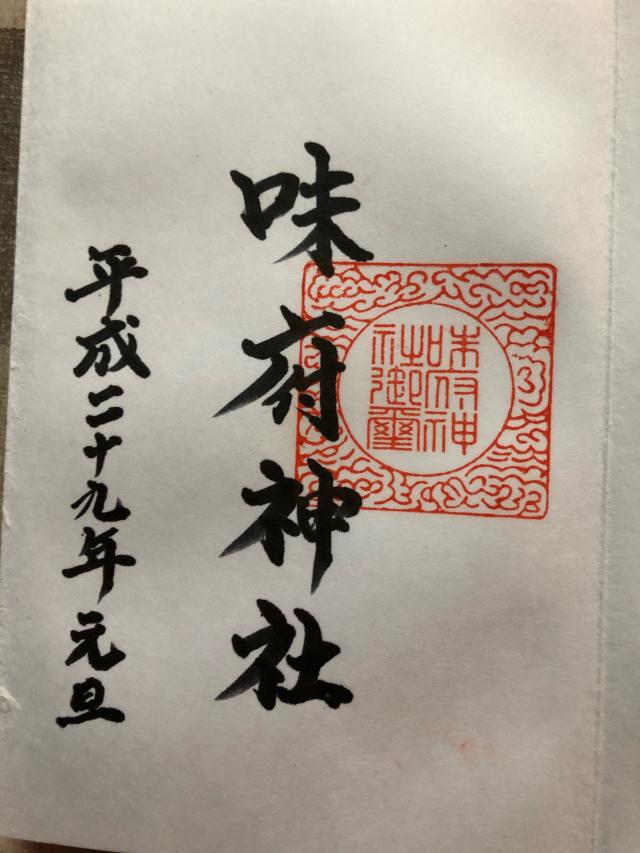 味府神社
味府神
社之御璽
平成二十九年元旦